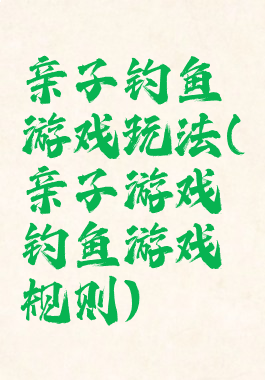 亲子钓鱼
游戏玩法(
亲子游戏
钓鱼游戏
规则)